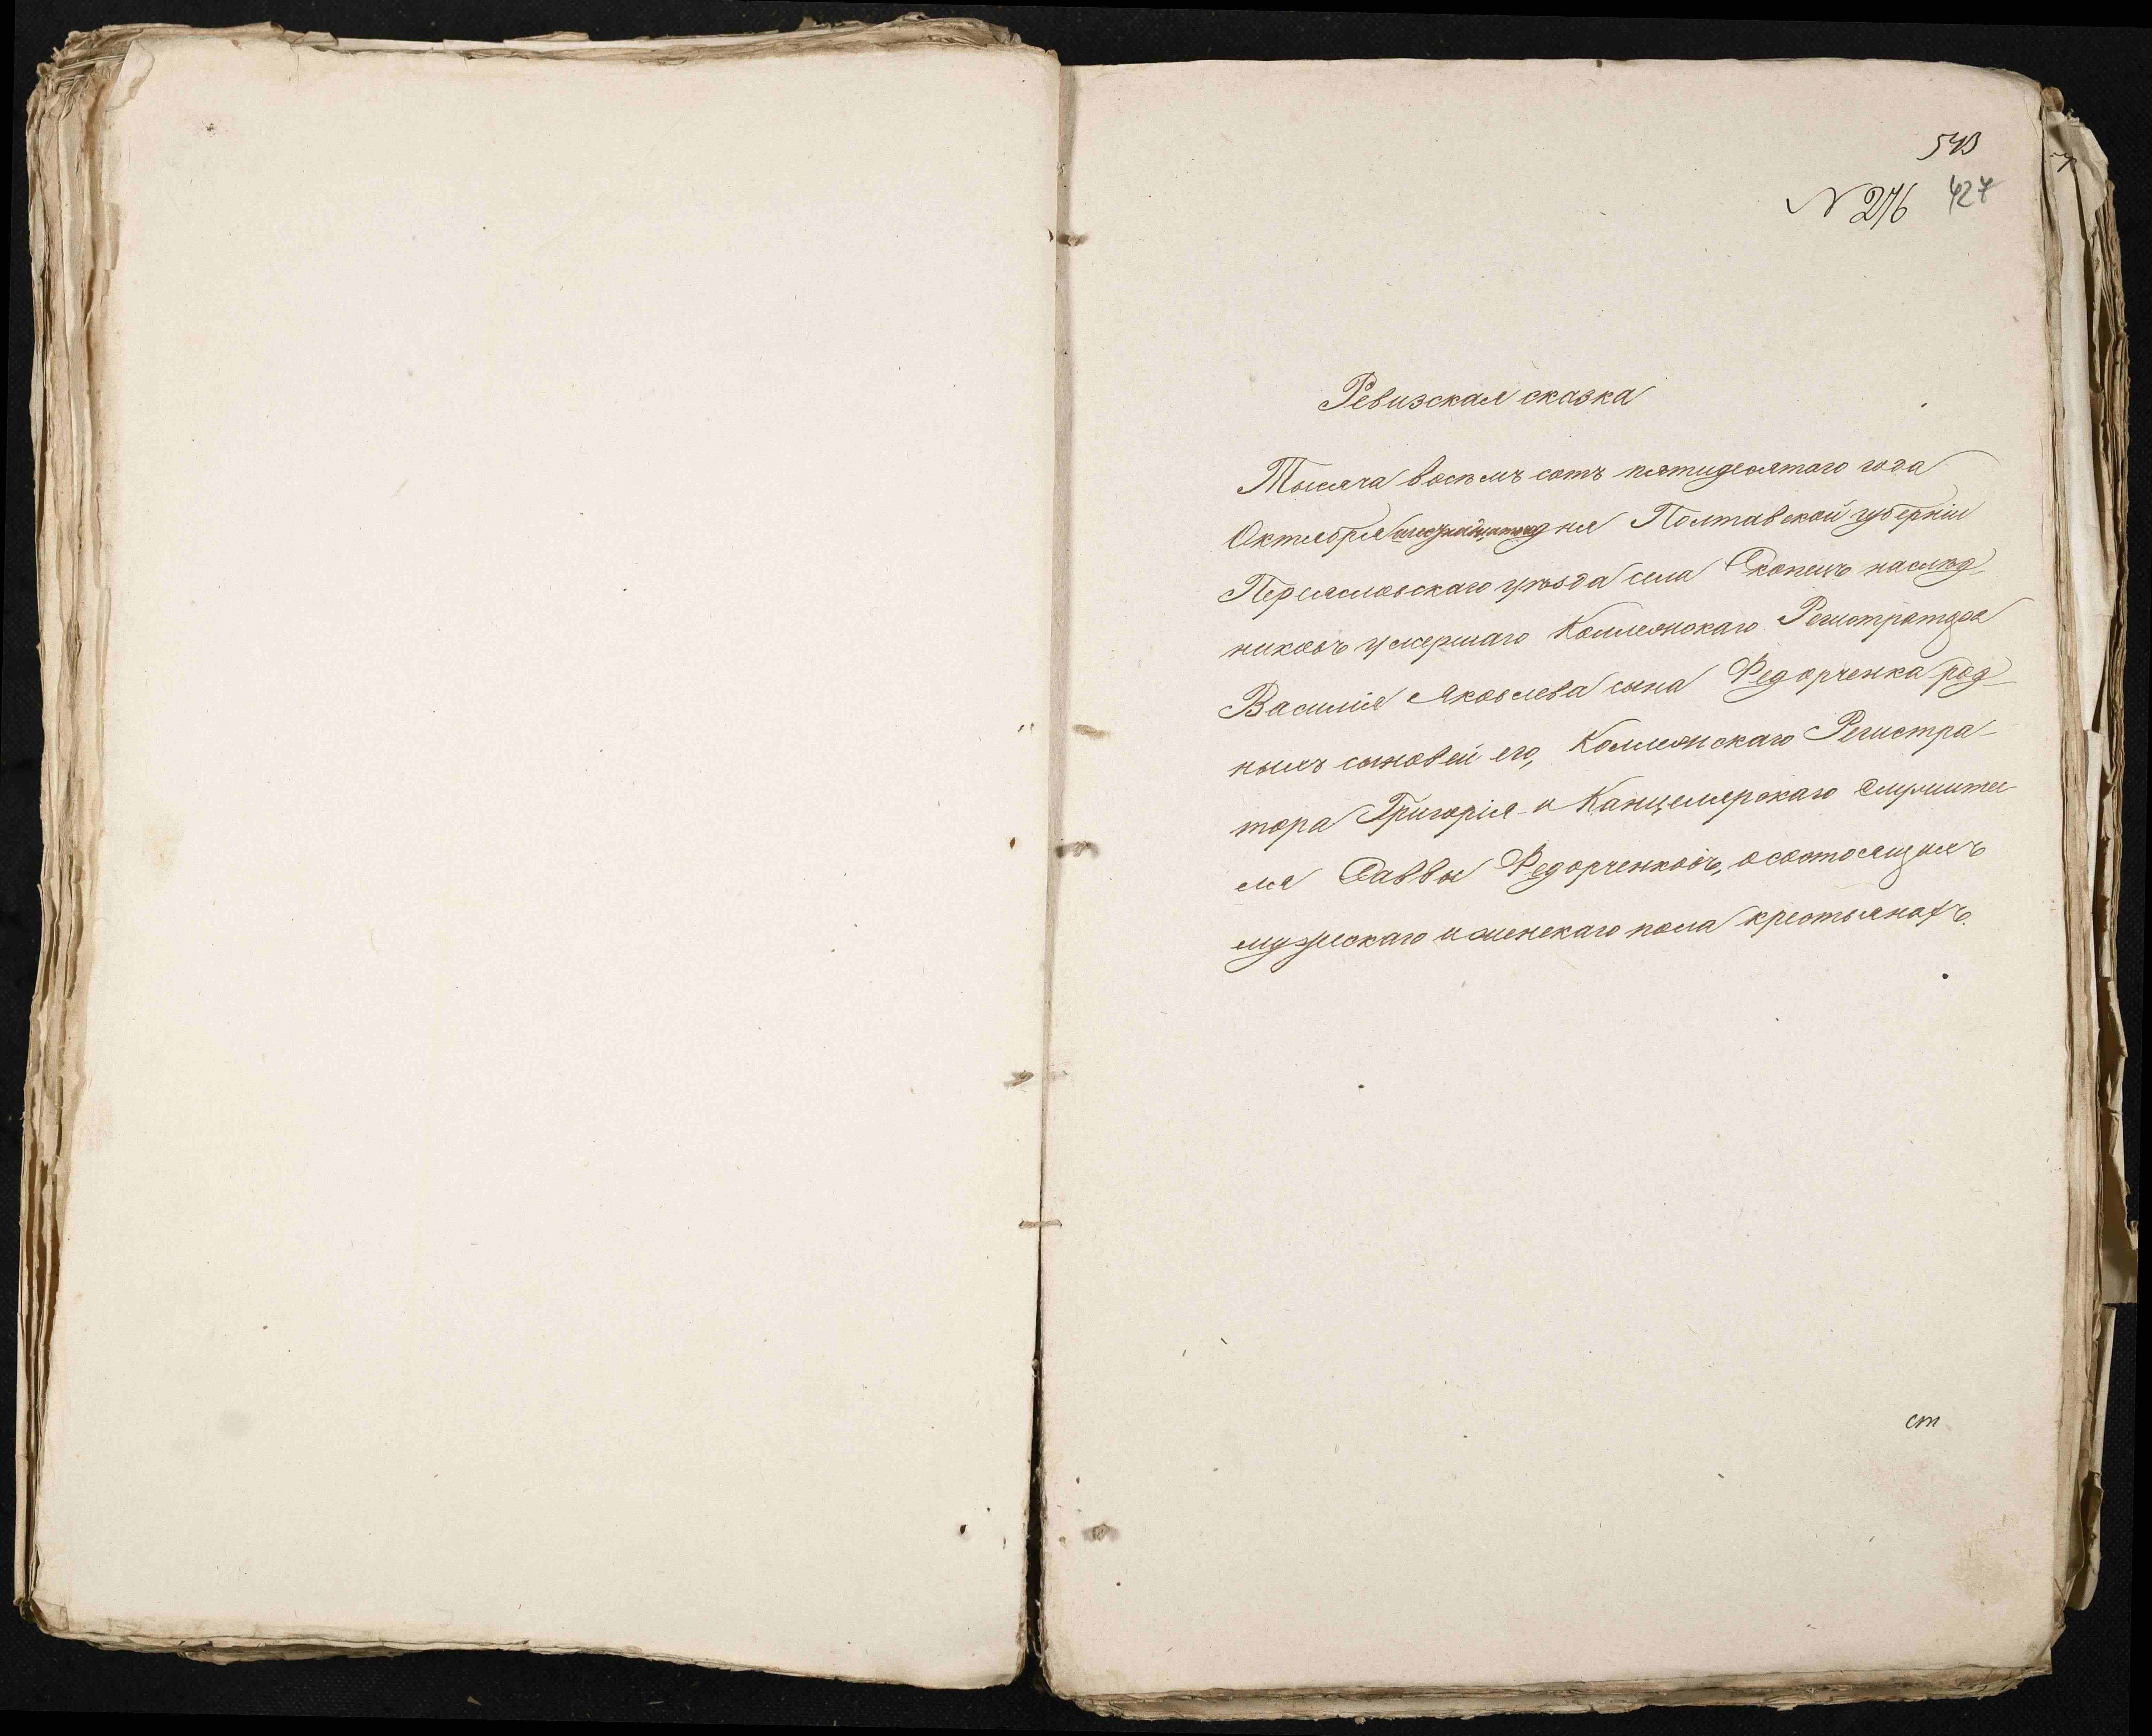 543
N 276 427
Ревизская сказка
Тысяча восемъ сотъ пятидесятого года
Октября дня Полтавской губерніи
Переясловскаго уѣзда села Скопецъ наслѣд-
никовъ умершаго Коллежскаго Регистратора
Василія Яковлева сына Федорченка род-
ныхъ сыновей его, Коллежскаго Регистра-
тора Григорія и Канцелярскаго Служите-
ля Саввы Федорченковъ, о состоящихъ
мужескаго и женскаго пола крестьянахъ.
ст